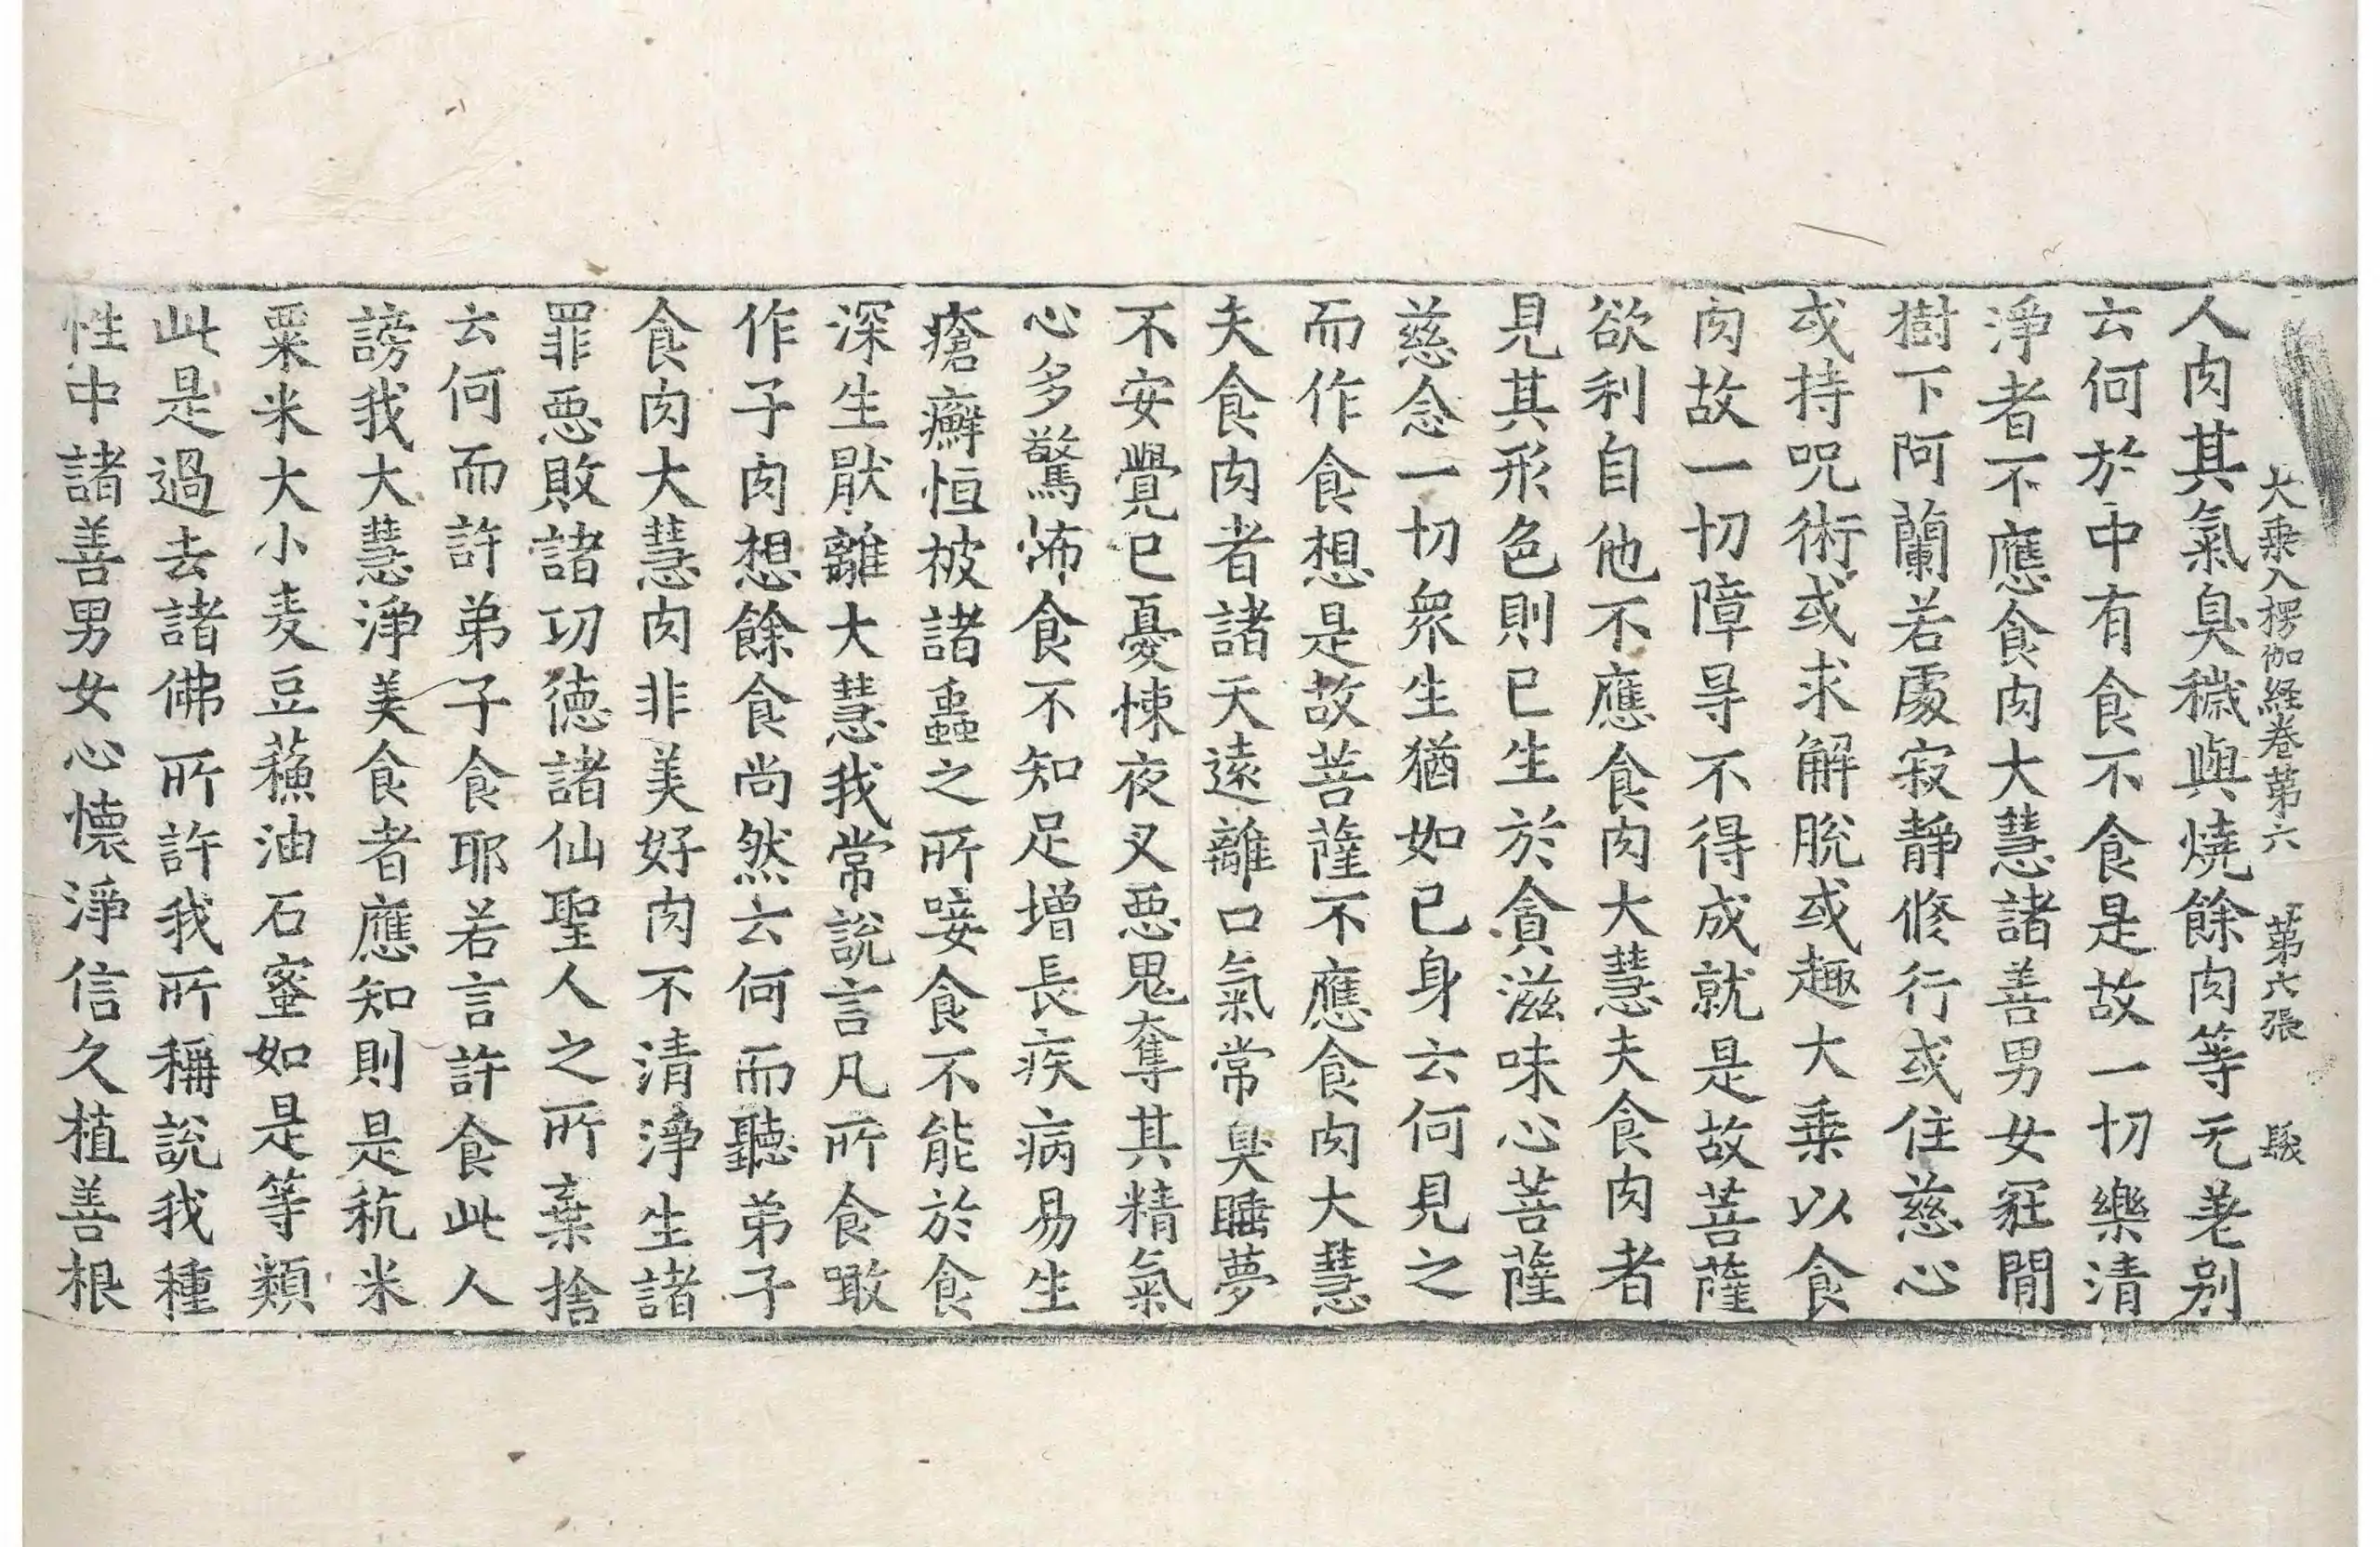 大乗入楞伽経卷第六　第六張　髮
人肉其氣臭穢與燒餘肉等无差别
云何於中有食不食是故一切樂清
淨者不應食肉大慧諸善男女冢間
樹下阿蘭若處寂靜修行或住慈心
或持呪術或求解脫或趣大乗以食
肉故一切障㝵不得成就是故菩薩
欲利自他不應食肉大慧夫食肉者
見其形色則已生於貪滋味心菩薩
慈念一切衆生猶如己身云何見之
而作食想是故菩薩不應食肉大慧
夫食肉者諸天遠離口氣常臭睡夢
不安覺已憂悚夜叉惡鬼奪其精氣
心多驚怖食不知足增長疾病易生
瘡癬恒被諸蟲之所唼食不能於食
深生猒離大慧我常說言凡所食噉
作子肉想餘食尚然云何而聽弟子
食肉大慧肉非美好肉不清淨生諸
罪惡敗諸功德諸仙聖人之所棄捨
云何而許弟子食耶若言許食此人
謗我大慧淨美食者應知則是秔米
粟米大小麦豆蘓油石蜜如是等類
此是過去諸佛所許我所稱說我種
性中諸善男女心懷淨信久植善根